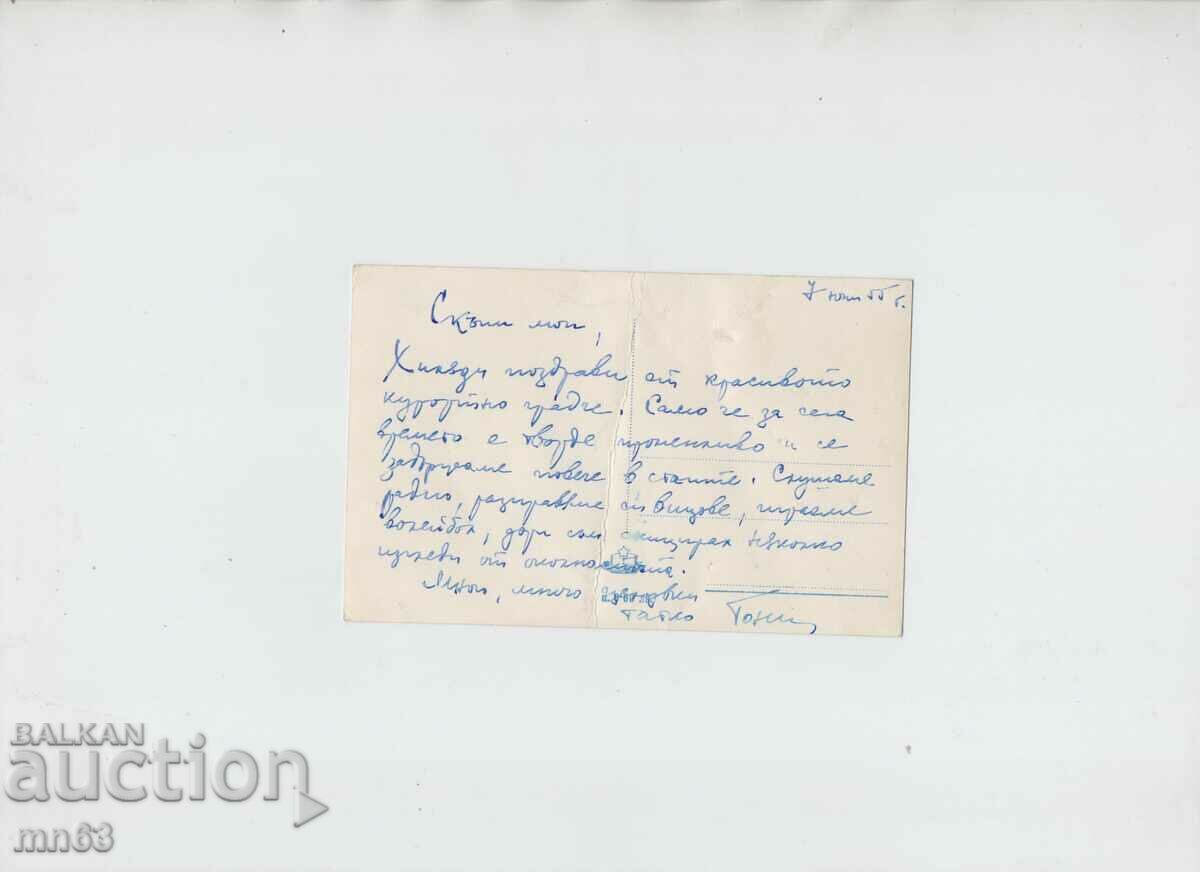 7 юни 55 г.
Скъпи мои,
Хиляди поздрави от красивото
курортно градче. Само че за сега
времето е твърде променливо и се
задържаме повече в стаите. Слушаме
радио, разправяме си вицове, играем
волейбол, дори съм скицирал няколко
изгледи от околността.
Много, много целувки
татко Тони
BALKAN
auction
мп63